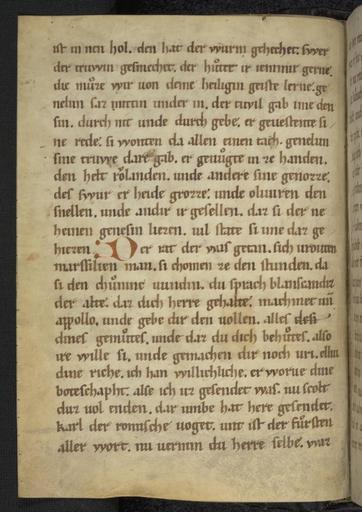 ist in nen hol. den hat der wurm gehechet. swer
der truwin gesmechet. der hůtet ir iemmir gerne.
die můze wir uon deme heiligin geiste lerne. ge
nelun saz mittin under in. der tuvil gab ime den
sin. durch nit unde durch gebe. er geuestente si
ne rede. si wonten da allen einen tach. genelun
sine truwe dare gab. er geiůgte in ze handen.
den helt rőlanden. unde andere sine genozze.
des swur er heide grozze. unde oliuiren den
snellen. unde andir ir gesellen. daz si der ne
heinen genesin liezen. uil state si ime daz ge
hiezen. Der rat der was getan. sich urouten
marssilien man. si chomen ze den stunden. da
si den chůninc uundin. du sprach blanscandiz
der alte. daz dich herre gehalte. machmet uñ
appollo. unde gebe dir den uollen. alles des
dines gemůtes. unde daz du dich behůtes. also
ire wille si. unde gemachen dir noch uri. elliu
dine riche. ich han willichliche. er worue dine
boteschapht. alse ich uz gesendet was. nu scolt
duz uol enden. daz umbe hat here gesendet.
karl der romische uoget. mit ist der fůrsten
aller wort. nu uernim du herre selbe. waz